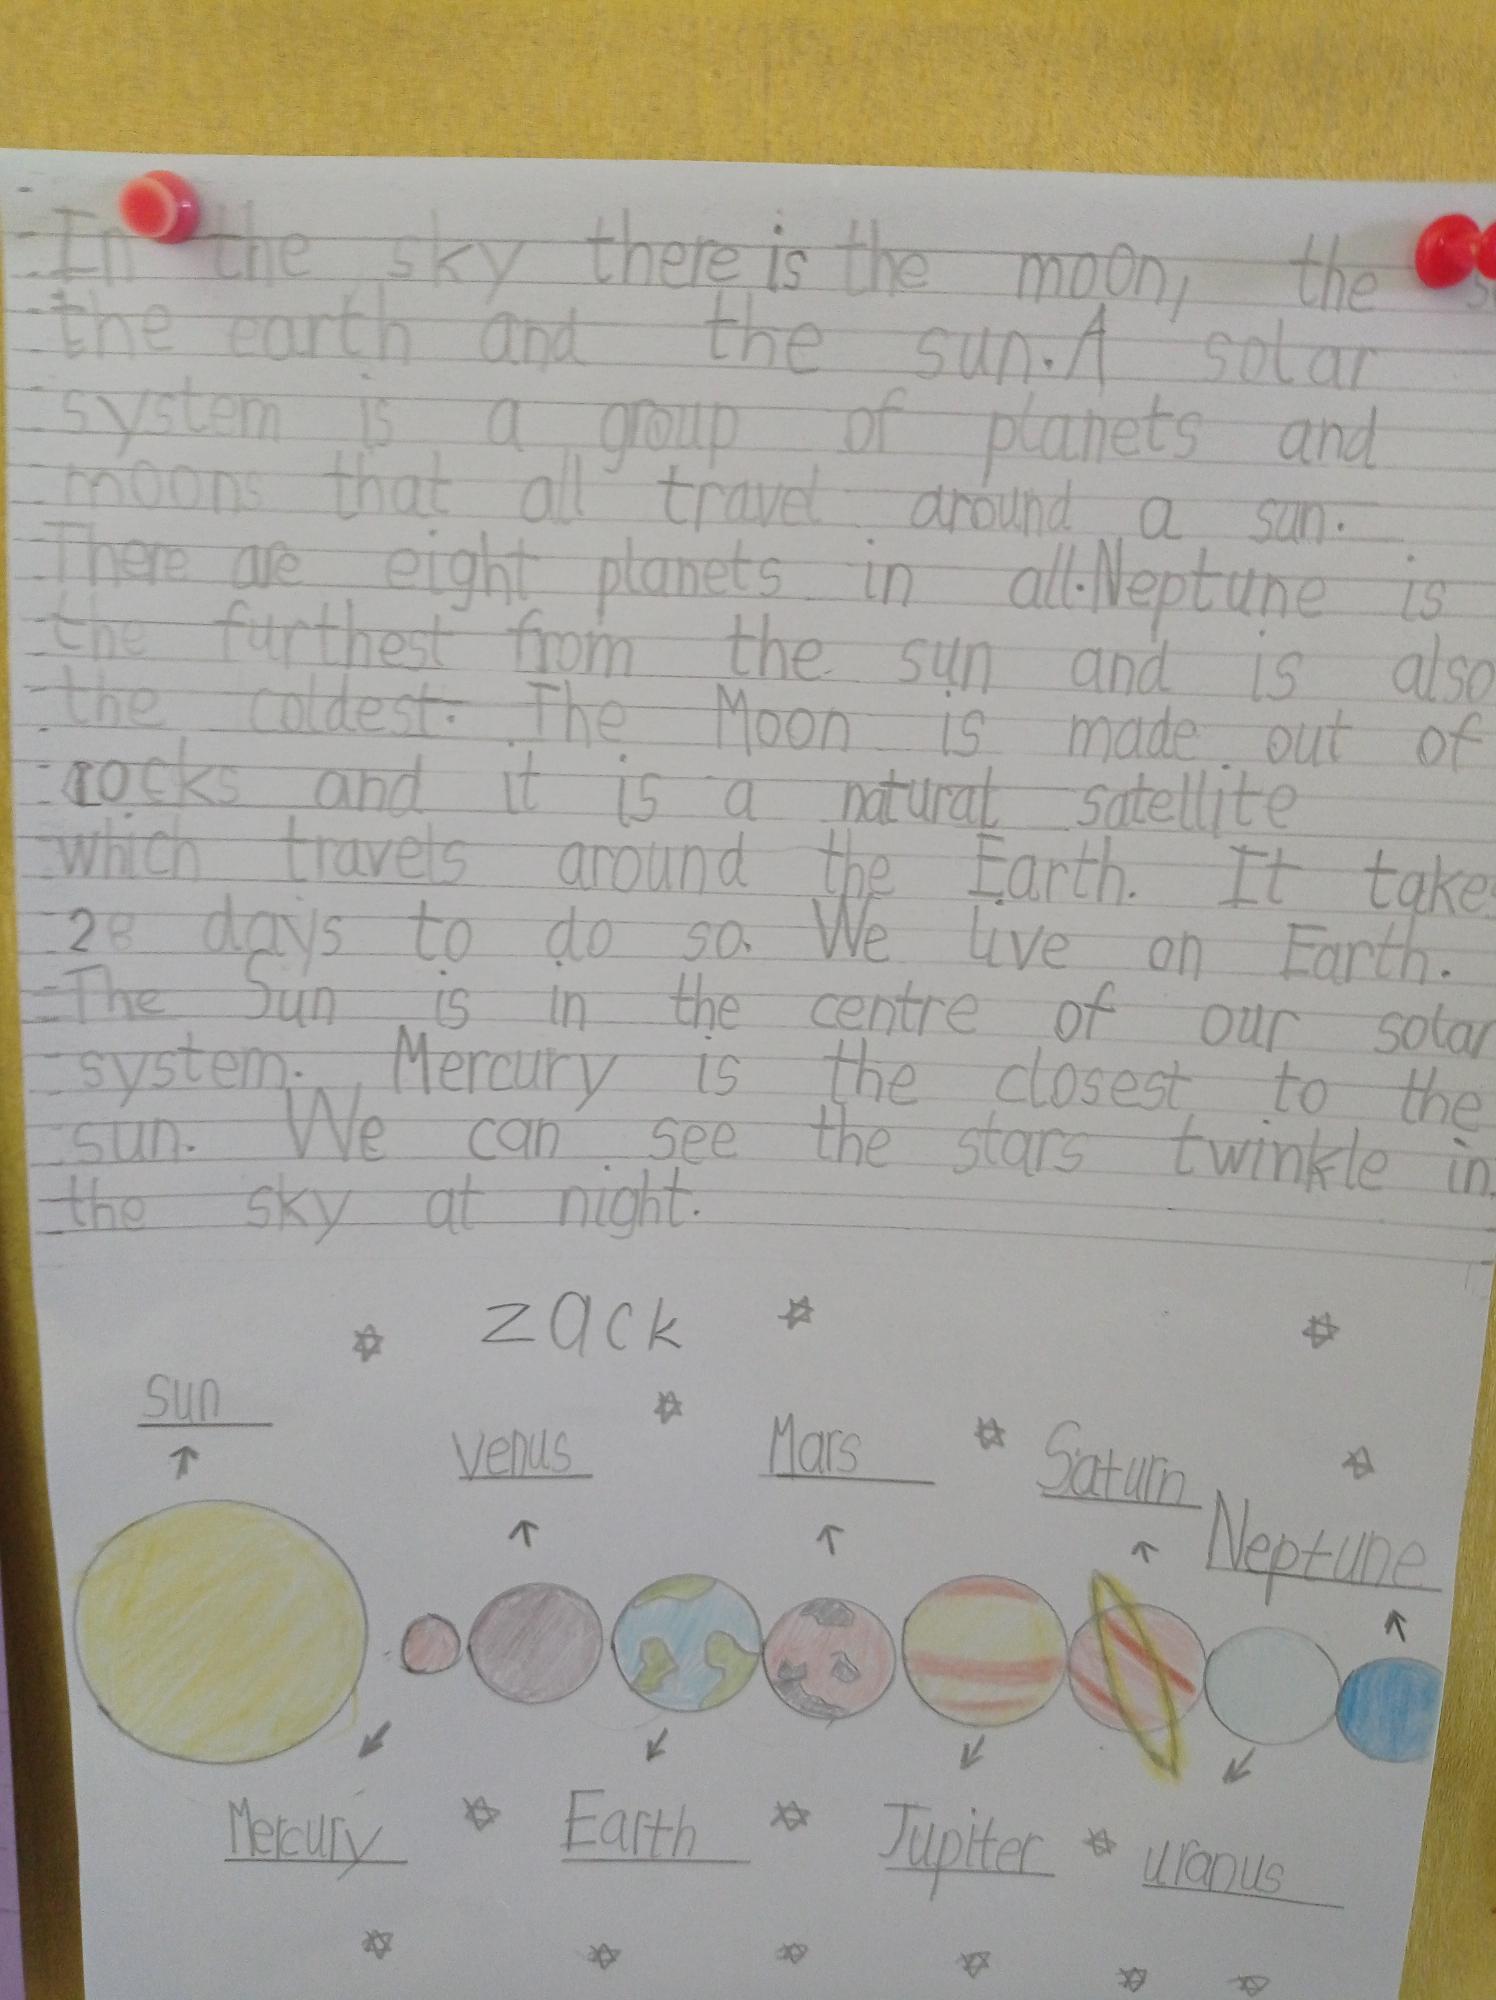 In the sky there is the moon, the
the earth and the sun. A solar
system is a group of planets and
moons that all travel around a sun.
There are eight planets in all. Neptune is
the furthest from the sun and is also
the coldest. The Moon is made out of
rocks and it is a natural satellite
which travels around the Earth. It take
28 days to do so. We live on Earth.
The Sun is in the centre of our solar
system. Mercury is the closest to the
sun. We can see the stars twinkle in
the sky at night.
zack
sun
venus
Mars
Saturn
Neptune
Mercury
Earth
Jupiter
uranus